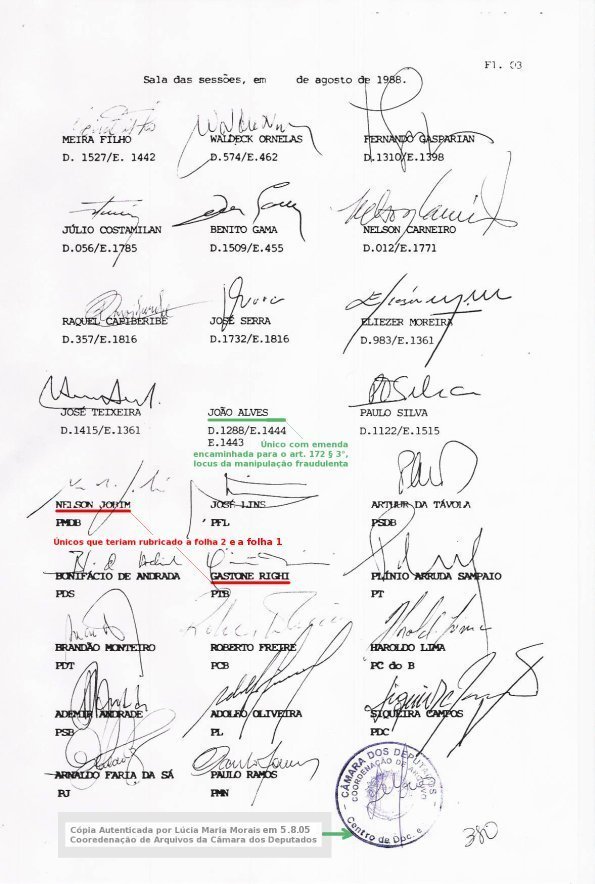 Fl. 03
Sala das sessões, em de agosto de 1988.
MEIRA FILHO WALDECK ORNELAS FERNANDO GASPARIAN
D. 1527/E. 1442 D.574/E.462 D.1310/E.1398
JÚLIO COSTAMILAN BENITO GAMA NELSON CARNEIRO
D.056/E.1785 D.1509/E.455 D.012/E.1771
RAQUEL CAPIBERIBE JOSÉ SERRA ELIEZER MOREIRA
D.357/E.1816 D.1732/E.1816 D.983/E.1361
JOSÉ TEIXEIRA JOÃO ALVES PAULO SILVA
D.1415/E.1361 D.1288/E.1444 D.1122/E.1515
E.1443 Único com emenda
encaminhada para o art. 172 § 3°,
locus da manipulação fraudulenta
NELSON JOBIM JOSÉ LINS ARTHUR DA TÁVOLA
PMDB PFL PSDB
Únicos que teriam rubricado a folha 2 e a folha 1
BONIFÁCIO DE ANDRADA GASTONE RIGHI PLÍNIO ARRUDA SAMPAIO
PDS PTB PT
BRANDÃO MONTEIRO ROBERTO FREIRE HAROLDO LIMA
PDT PCB PC do B
ADEMIR ANDRADE ADOLFO OLIVEIRA SIQUEIRA CAMPOS
PSB PL PDC
ARNALDO FARIA DA SÁ PAULO RAMOS
PJ PMN
CÂMARA DOS DEPUTADOS
COORDENAÇÃO DE ARQUIVO
Centro de Doc. e
Cópia Autenticada por Lúcia Maria Morais em 5.8.05
Cooredenação de Arquivos da Câmara dos Deputados
380